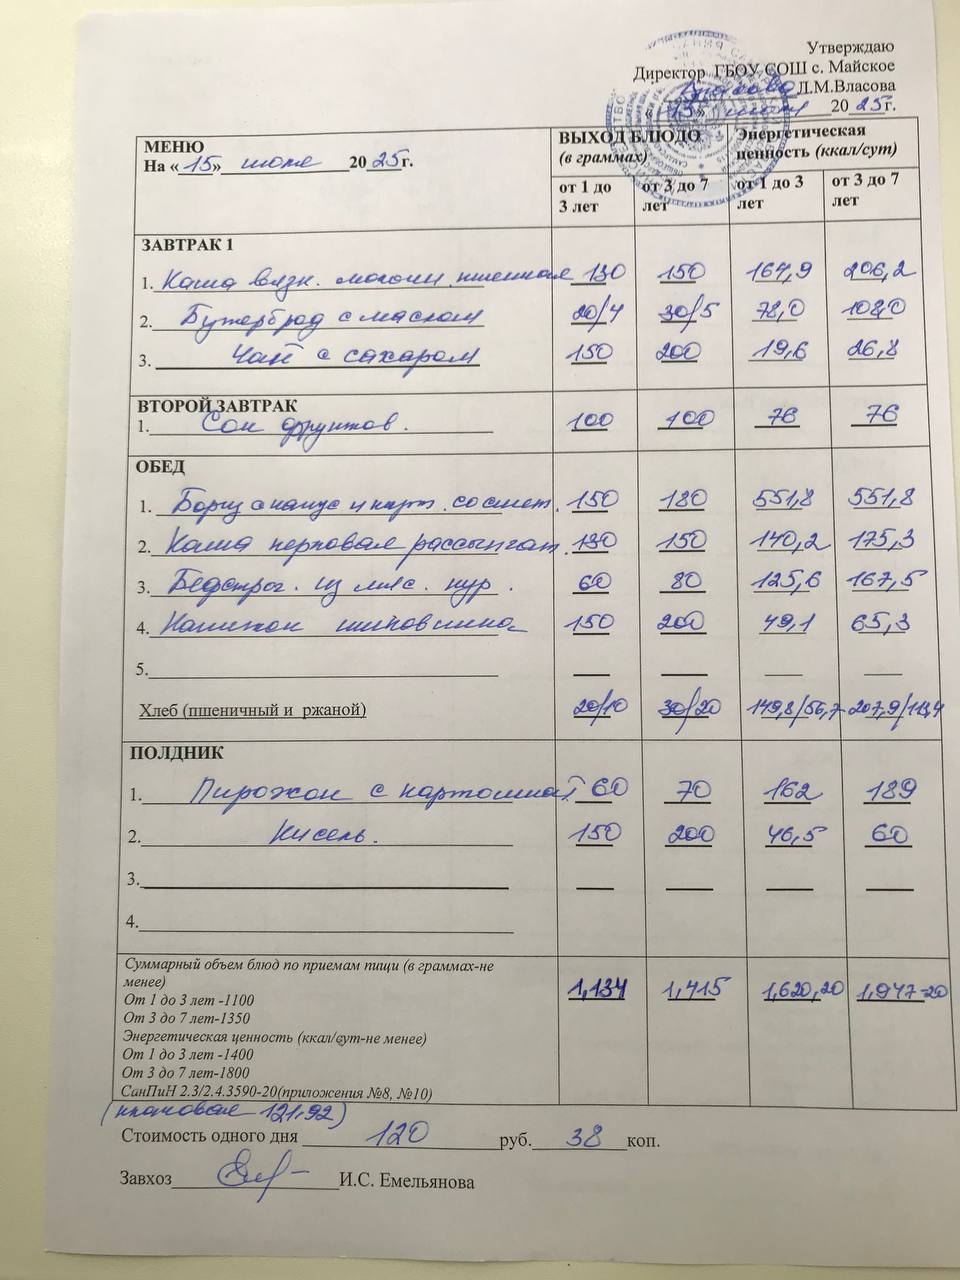 Утверждаю
Директор ГБОУ СОШ с. Майское
Л.М.Власова
«15» июля 2025г.
МЕНЮ
На «15» июля 2025г.
ВЫХОД БЛЮДО (в граммах)
Энергетическая ценность (ккал/сут)
от 1 до 3 лет от 3 до 7 лет от 1 до 3 лет от 3 до 7 лет
ЗАВТРАК 1
1. Каша вязк. молочн. пшенная 130 150 167,9 206,2
2. Бутерброд с маслом 20/4 30/5 78,0 108,0
3. Чай с сахаром 150 200 19,6 26,8
ВТОРОЙ ЗАВТРАК
1. Сок фруктов. 100 100 76 76
ОБЕД
1. Борщ с капус и карт. со смет. 150 180 551,8 551,8
2. Каша перловая рассыпчат. 130 150 140,2 175,3
3. Бефстрог. из мяс. кур. 60 80 125,6 167,5
4. Напиток шиповника 150 200 49,1 65,3
5.
Хлеб (пшеничный и ржаной) 20/10 30/20 149,8/56,7 207,9/113,4
ПОЛДНИК
1. Пирожок с картошкой 60 70 162 189
2. Кисель. 150 200 46,5 60
3.
4.
Суммарный объем блюд по приемам пищи (в граммах-не
менее) 1,134 1,415 1,620,20 1,947-20
От 1 до 3 лет -1100
От 3 до 7 лет-1350
Энергетическая ценность (ккал/сут-не менее)
От 1 до 3 лет -1400
От 3 до 7 лет-1800
СанПиН 2.3/2.4.3590-20(приложения №8, №10)
(плановая 121.92)
Стоимость одного дня 120 руб. 38 коп.
Завхоз И.С. Емельянова